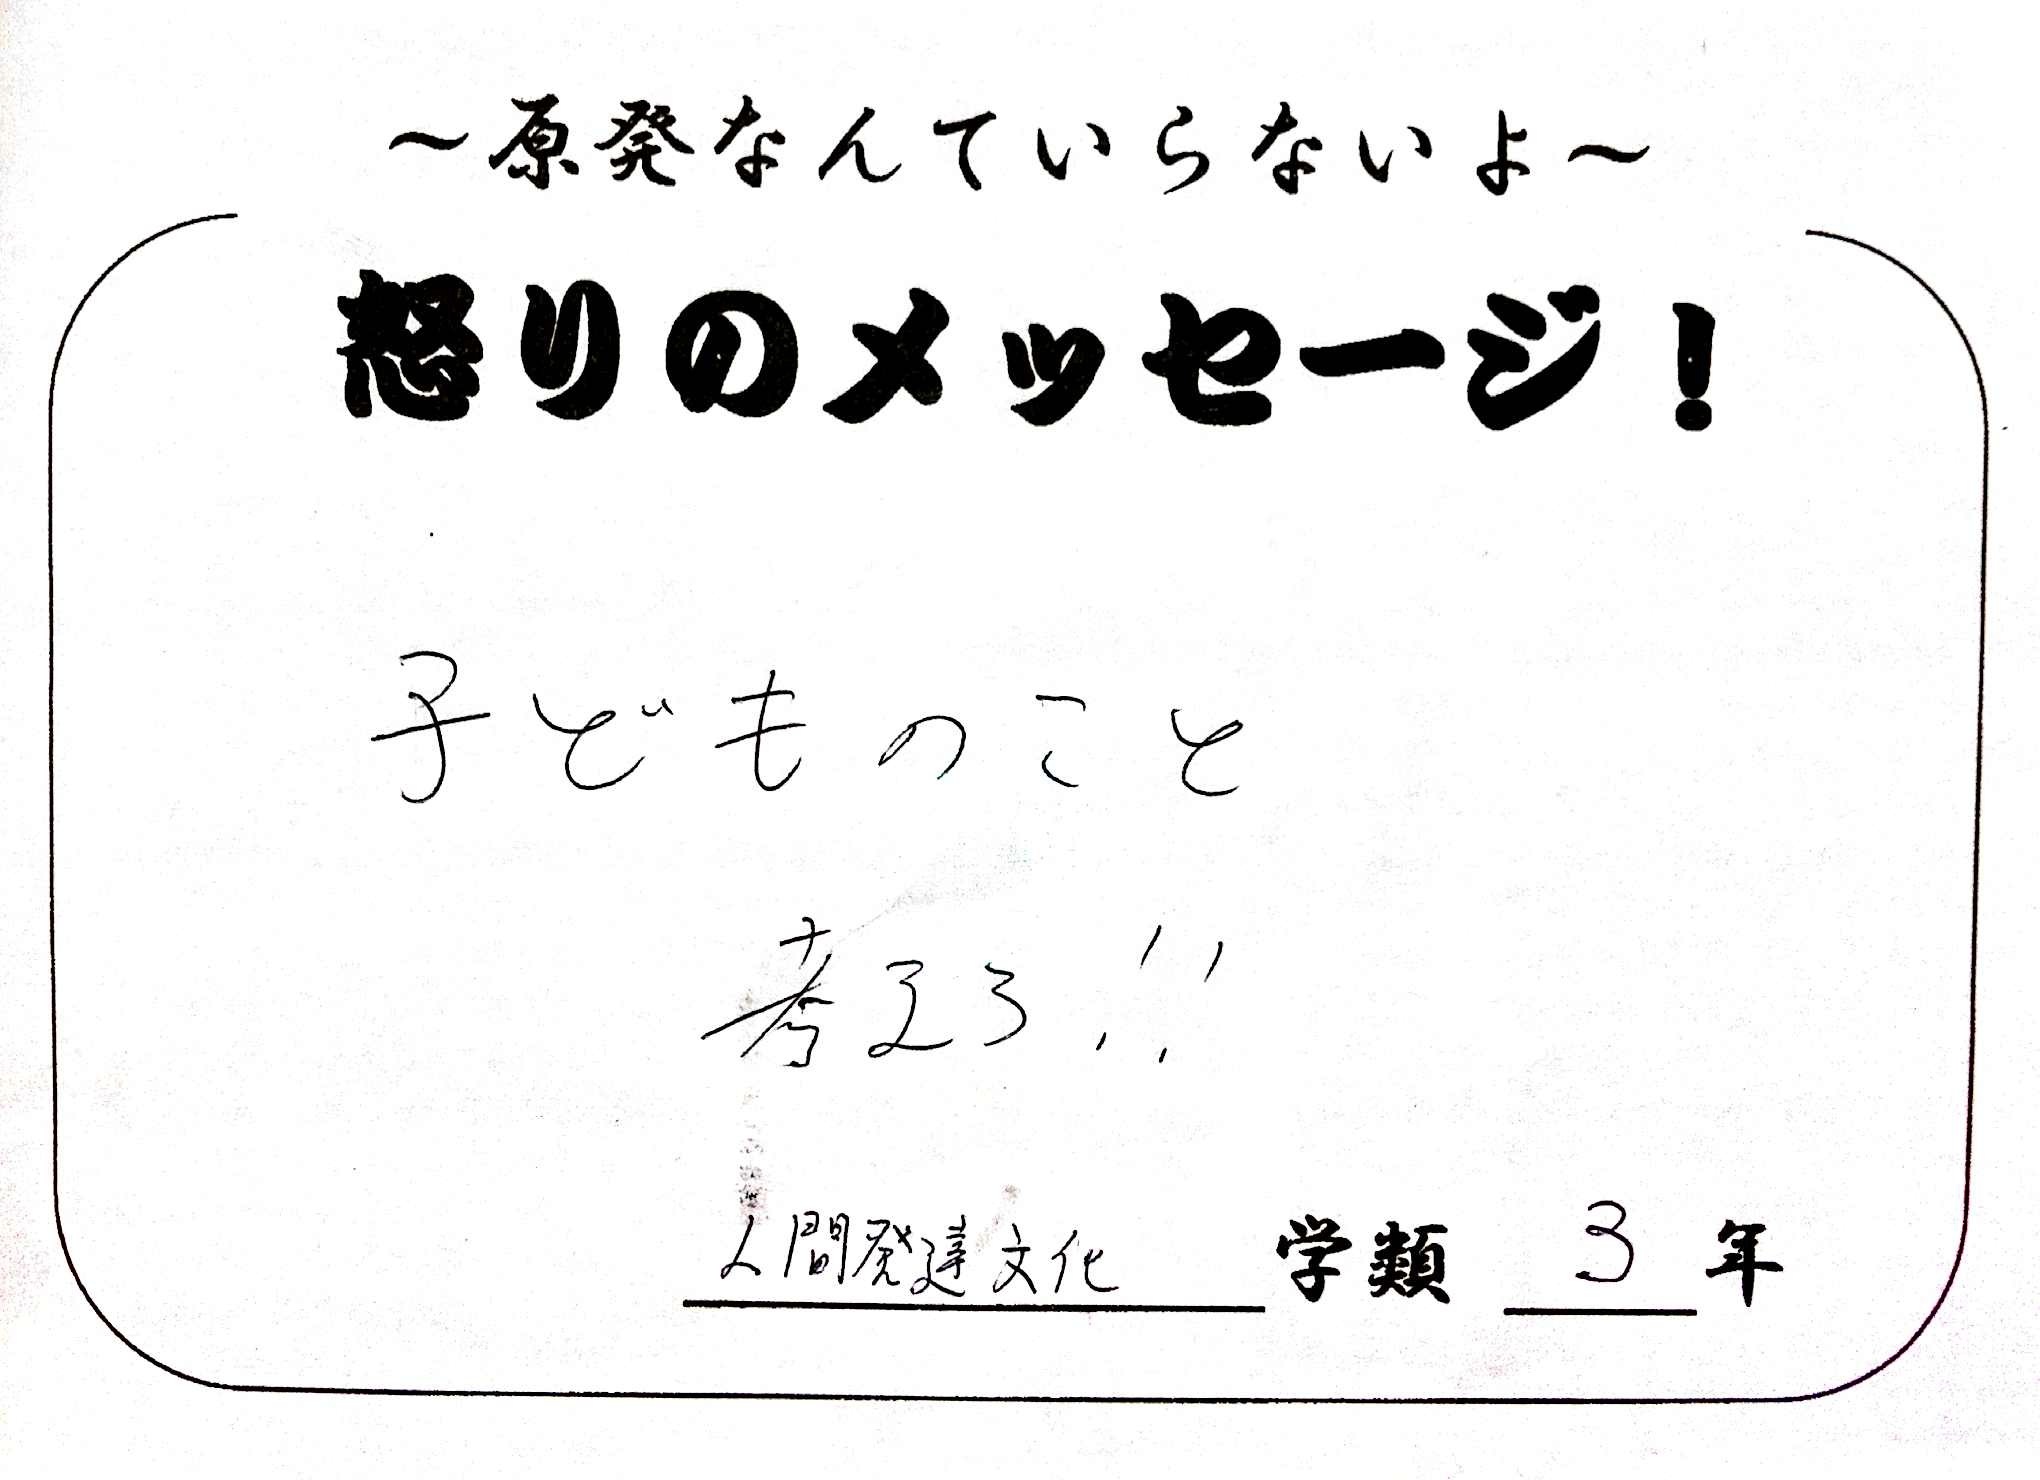 ～原発なんていらないよ～
怒りのメッセージ！
子どものこと
考えろ!!
人間発達文化 学類 3 年